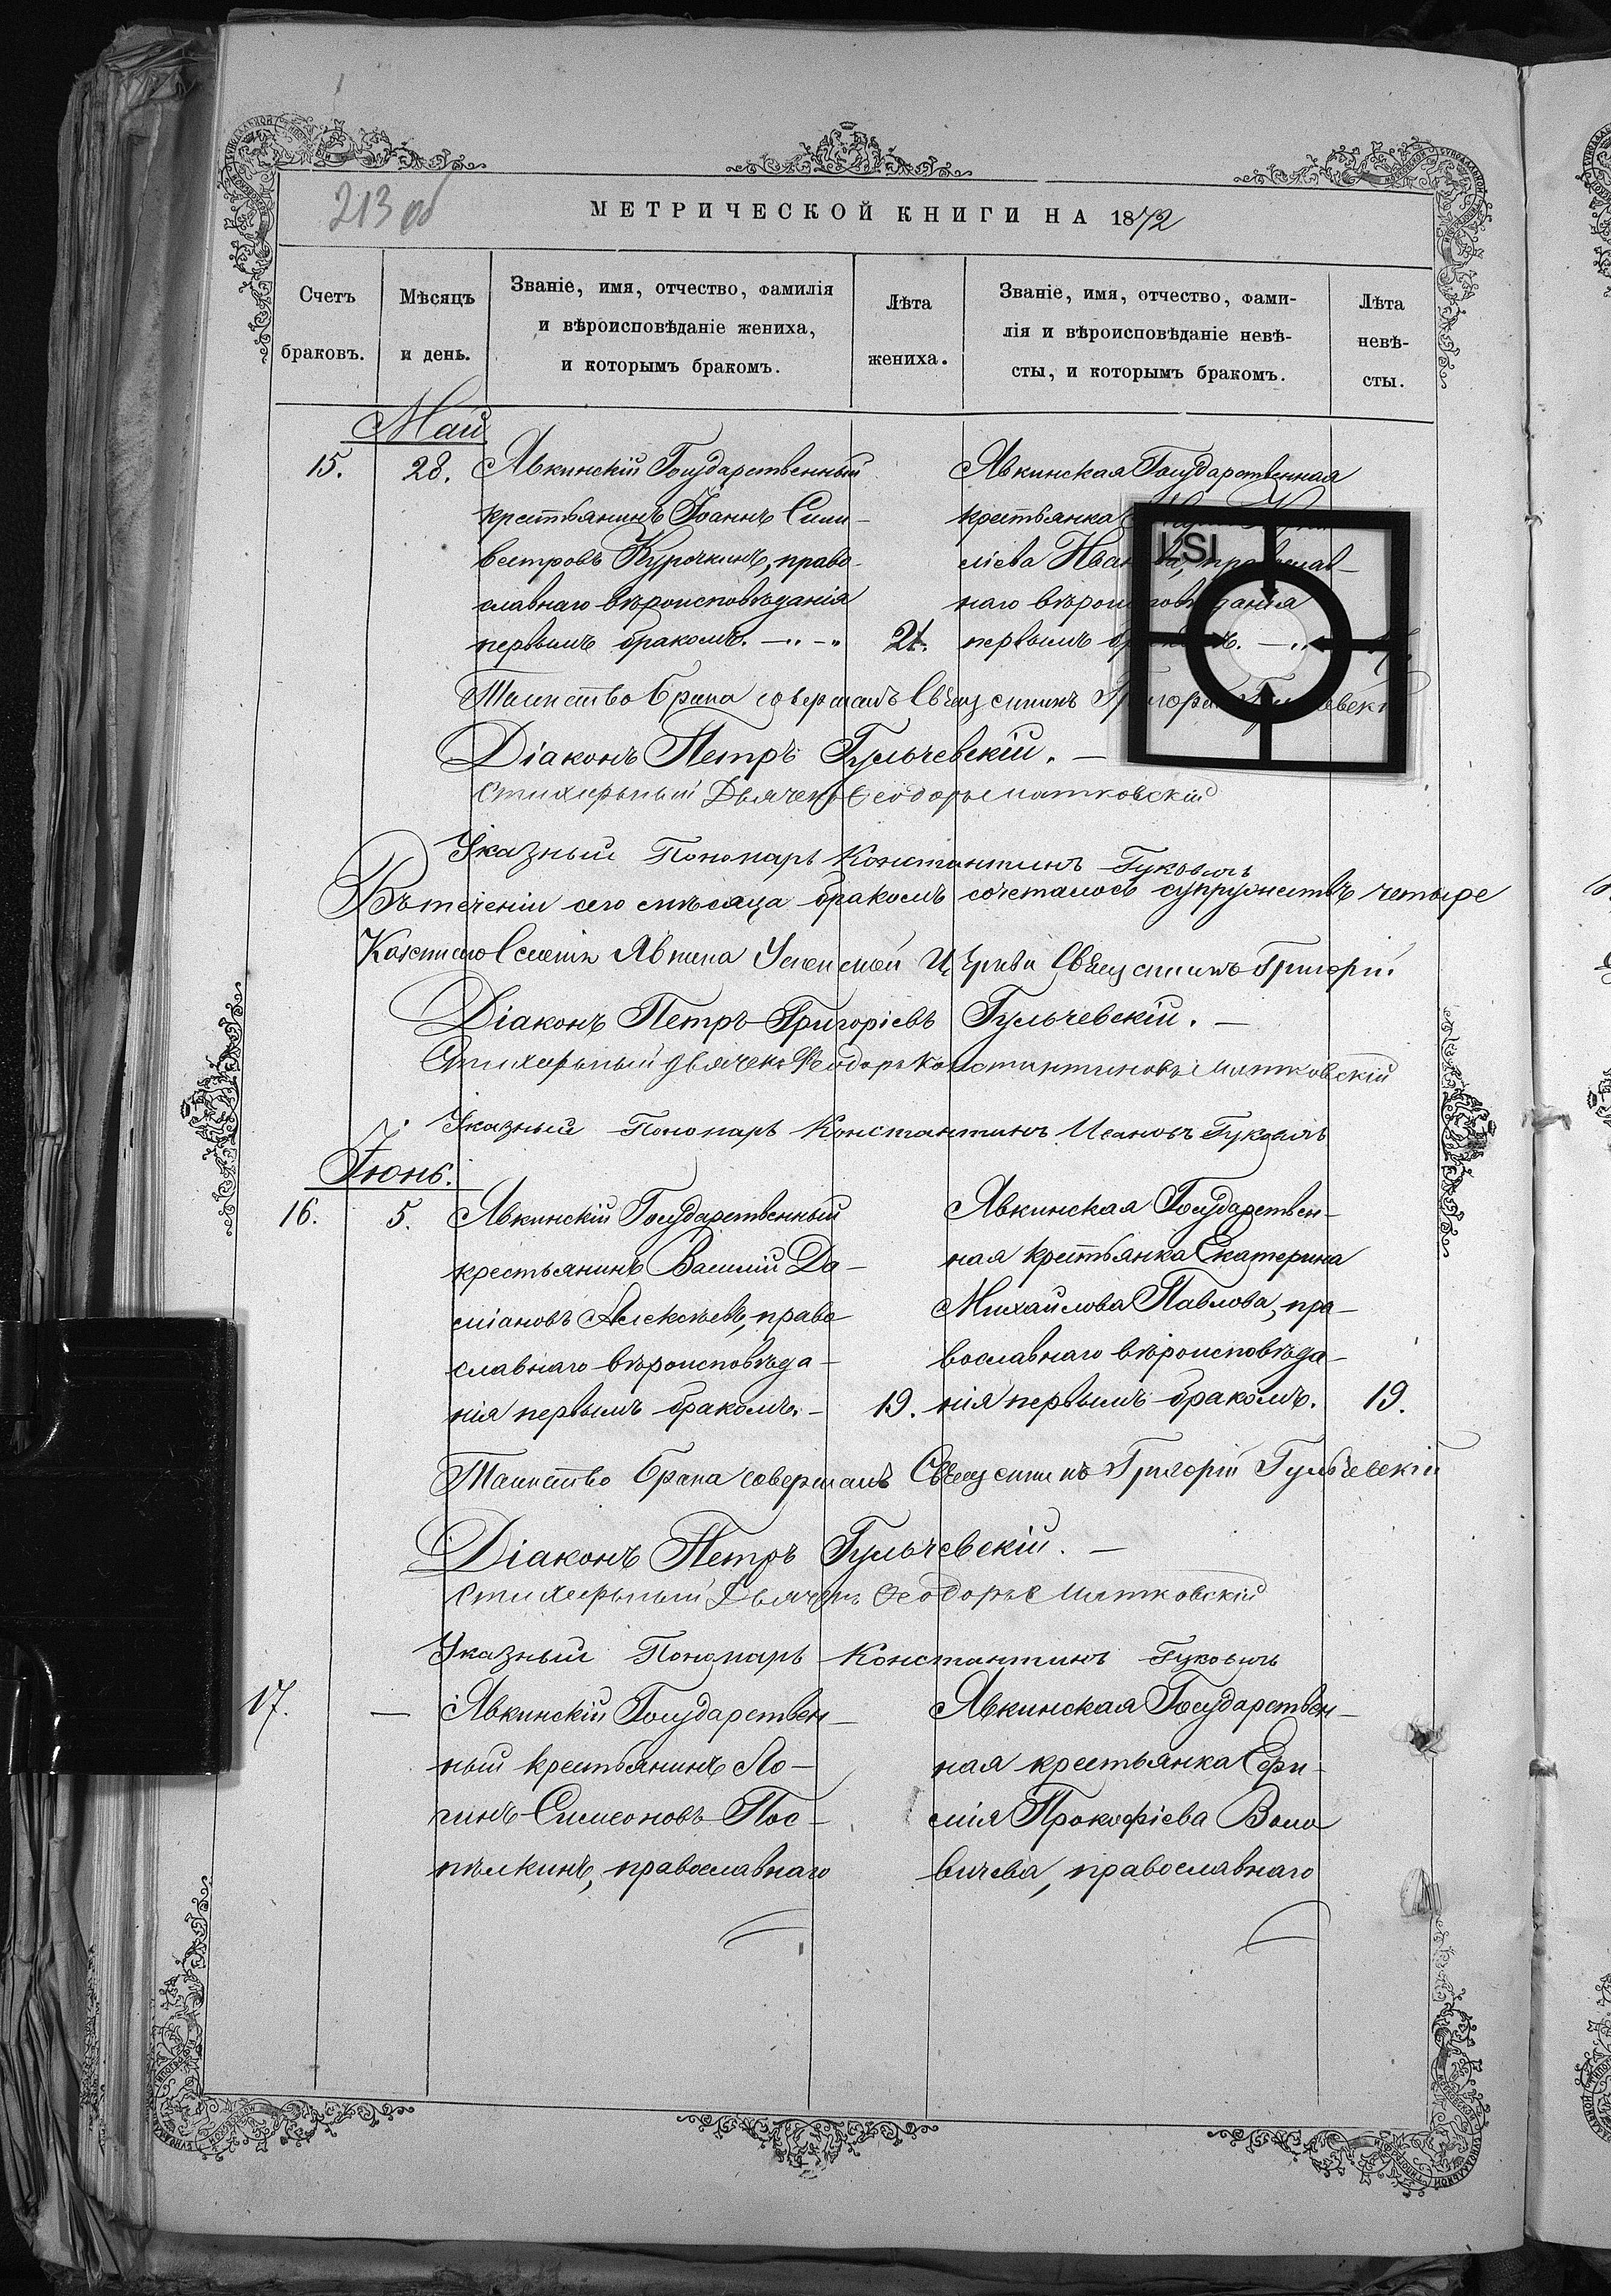 213 об
МЕТРИЧЕСКОЙ КНИГИ НА 1872
Счетъ браковъ.
Мѣсяцъ и день.
Званіе, имя, отчество, фамилія
и вѣроисповѣданіе жениха,
и которымъ бракомъ.
Лѣта жениха.
Званіе, имя, отчество, фами-
лія и вѣроисповѣданіе невѣ-
сты, и которымъ бракомъ.
Лѣта невѣ-
сты.
Май
15. 28. Явкинскій Государственный
крестьянинъ Іоаннъ Сили-
вестровъ Курочкинъ, право-
славнаго вѣроисповѣданія
первымъ бракомъ. 21.
Явкинская Государственная
крестьянка
Иванова, православ-
наго вѣроисповѣданія
первымъ бракомъ.
LSI
Таинство Брака совершалъ Священникъ Григорій Гульчевскі
Діаконъ Петръ Гульчевскій.
Стихарный Дьячекъ Ѳеодоръ Мятковскій
Указный Пономарь Константинъ
Въ теченіи сего мѣсяца бракомъ сочеталось супружествъ четыре
Явкина Успенской Церкви Священникъ Григорій
Діаконъ Петръ Григоріевъ Гульчевскій.
Стихарный Дьячекъ Ѳеодоръ Константиновъ Мятковскій
Указный Пономарь Константинъ Ивановъ
Іюнь.
16. 5. Явкинскій Государственный
крестьянинъ Василій Да-
міановъ Алексѣевъ, право-
славнаго вѣроисповѣда-
нія первымъ бракомъ. 19.
Явкинская Государствен-
ная крестьянка Екатерина
Михайлова Павлова, пра-
вославнаго вѣроисповѣда-
нія первымъ бракомъ. 19.
Таинство Брака совершалъ Священникъ Григорій Гульчевскій
Діаконъ Петръ Гульчевскій.
Стихарный Дьячекъ Ѳеодоръ Мятковскій
Указный Пономарь Константинъ
17. — Явкинскій Государствен-
ный крестьянинъ Ло-
гинъ Симеоновъ Пос-
пѣлкинъ, православнаго
Явкинская Государствен-
ная крестьянка Ефи-
мія Прокофіева Воло
вичева, православнаго